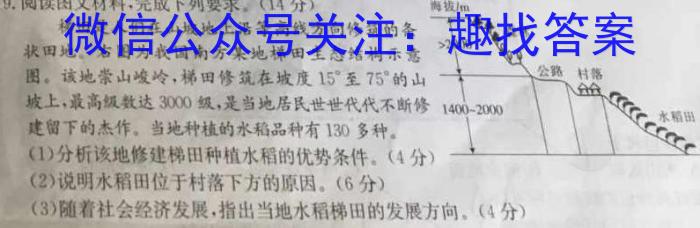 9.阅读图文材料,完成下列要求。(14分)
海拔/m
微信公众号关注：趣找答案
状田地。
图。该地崇山峻岭,梯田修筑在坡度 15°至 75°的山
坡上,最高级数达 3000 级,是当地居民世世代代不断修
建留下的杰作。当地种植的水稻品种有 130 多种。
(1)分析该地修建梯田种植水稻的优势条件。(4分)
(2)说明水稻田位于村落下方的原因。(6分)
(3)随着社会经济发展,指出当地水稻梯田的发展方向。(4分)
公路
村落
1400~2000
水稻田